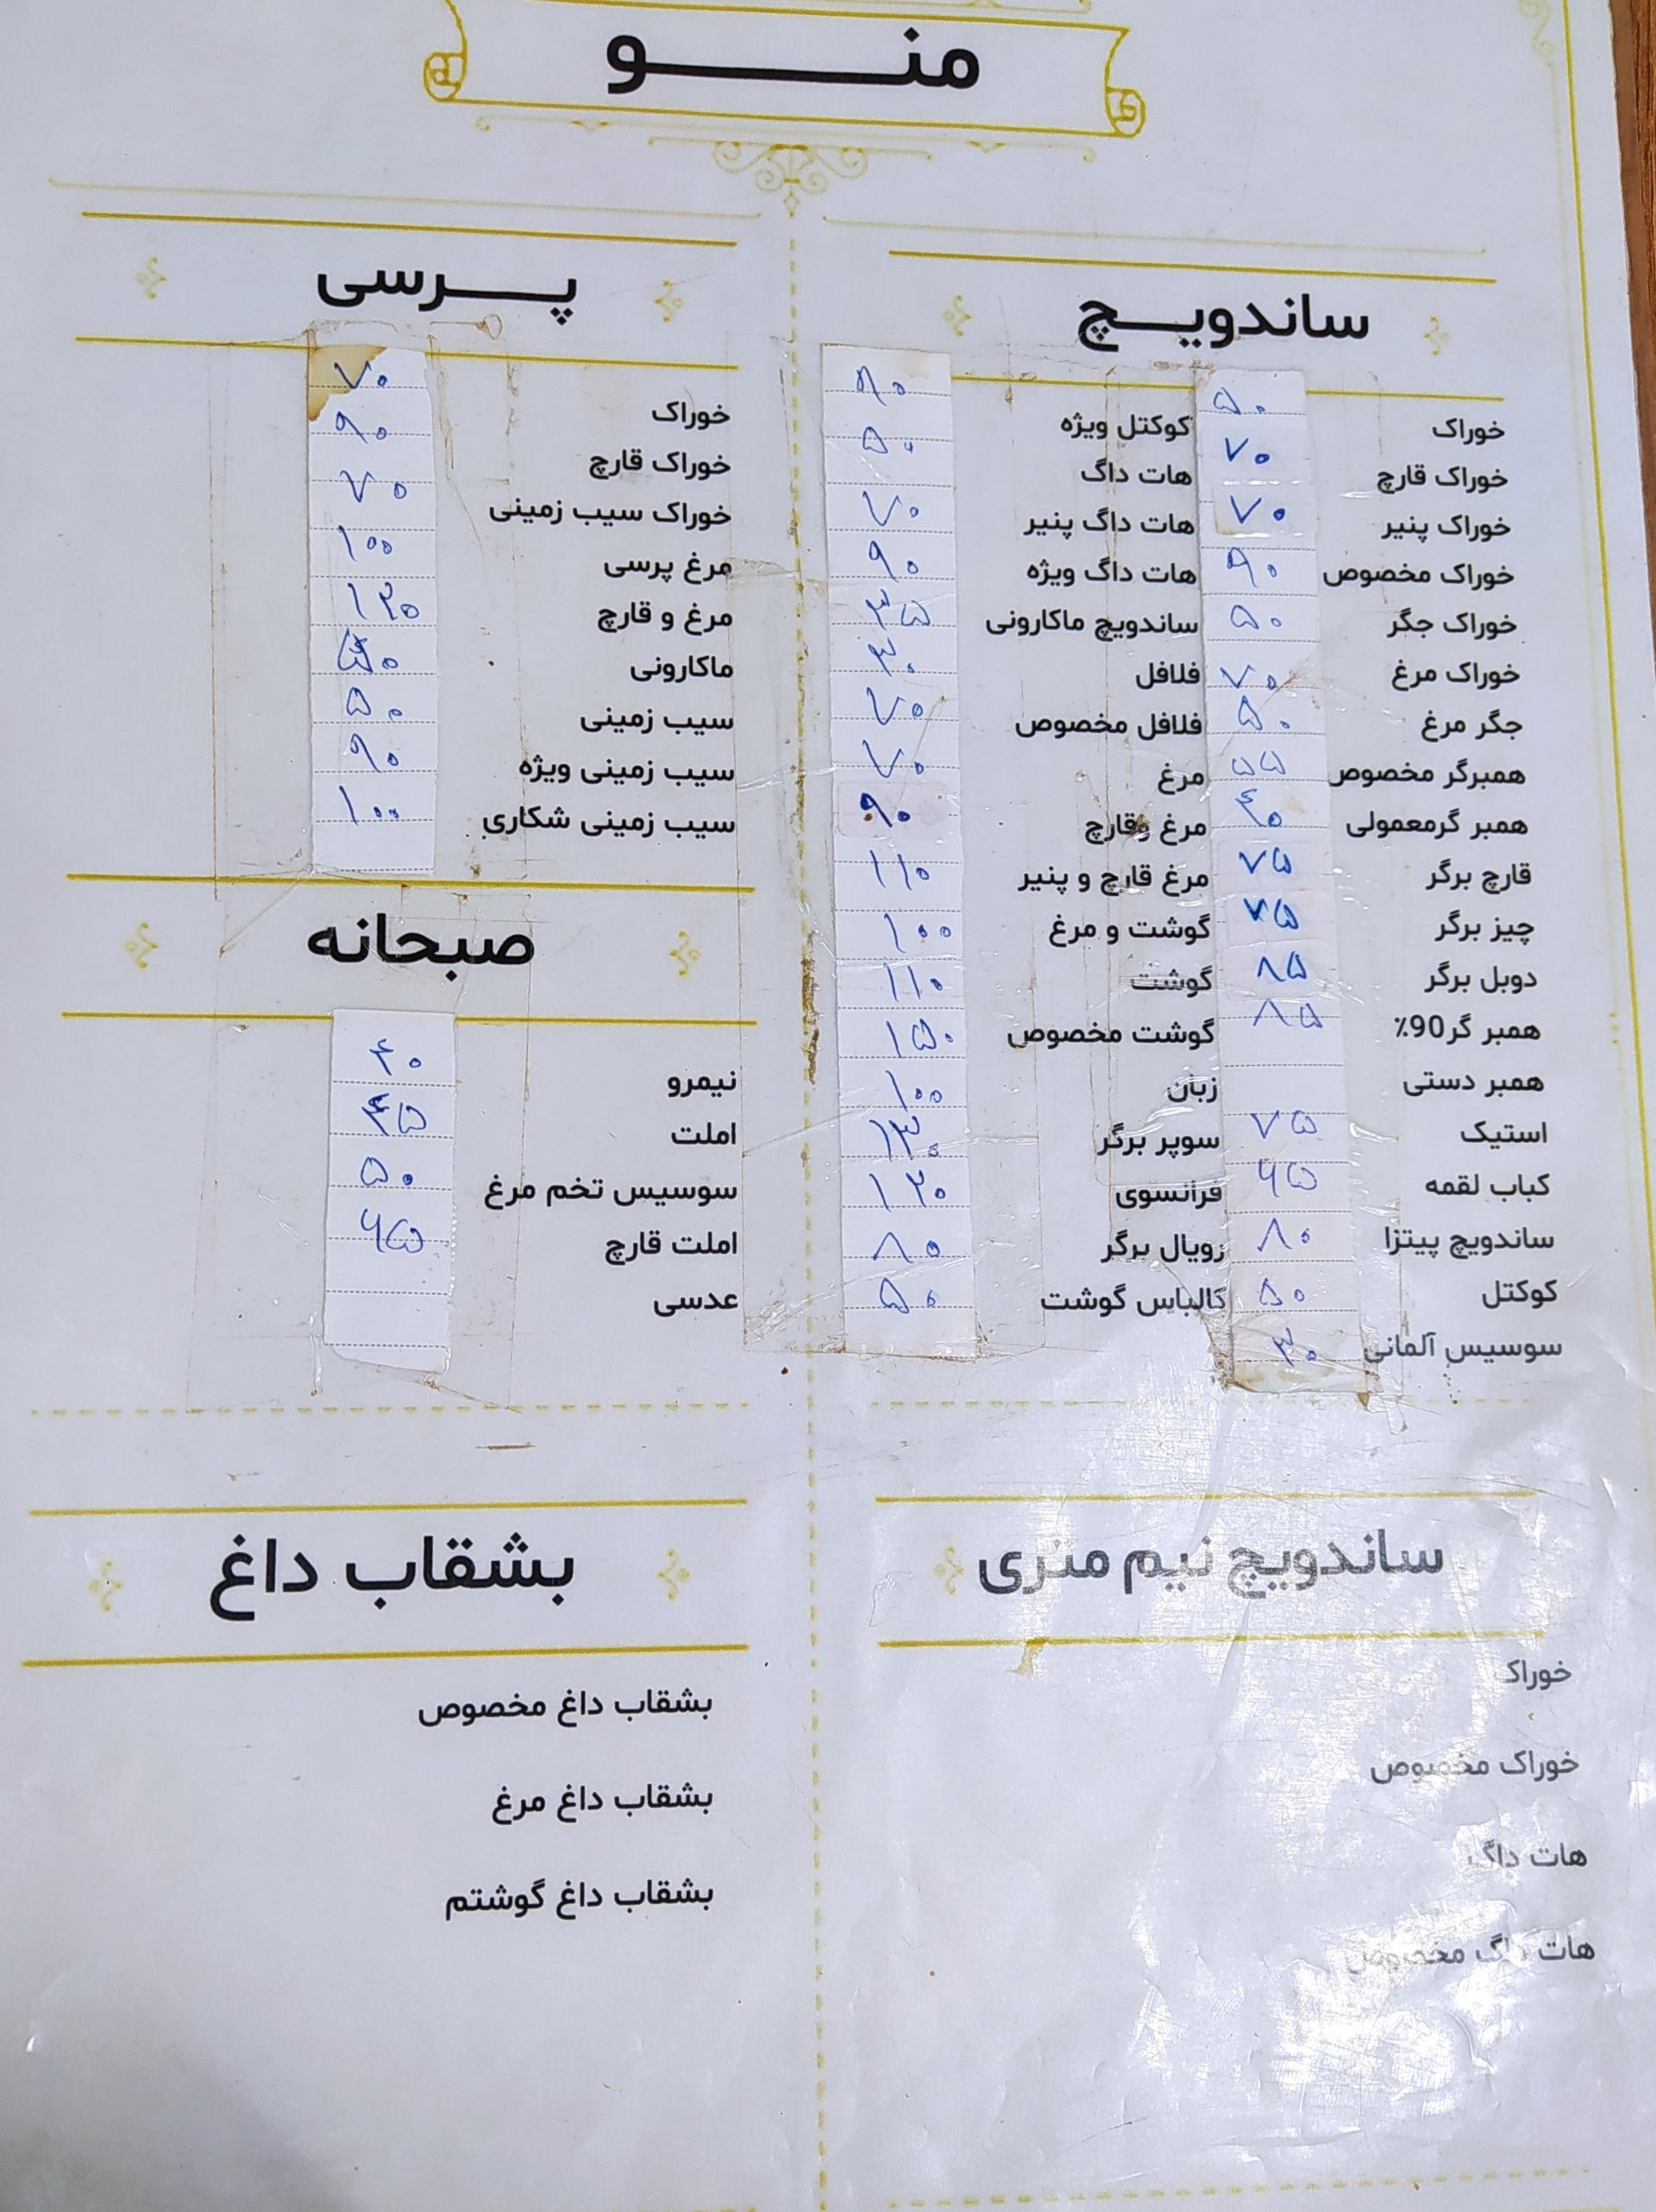 منو
ساندویچ
خوراک ۵۰
خوراک قارچ ۷۰
خوراک پنیر ۷۰
خوراک مخصوص ۹۰
خوراک جگر ۵۰
خوراک مرغ ۷۰
جگر مرغ ۵۰
همبرگر مخصوص ۵۵
همبر گرمعمولی ۴۰
قارچ برگر ۷۵
چیز برگر ۷۵
دوبل برگر ۸۵
همبر گر90٪ ۸۵
همبر دستی
استیک ۷۵
کباب لقمه ۶۵
ساندویچ پیتزا ۸۰
کوکتل ۵۰
سوسیس آلمانی ۳۰
کوکتل ویژه ۹۰
هات داگ ۵۰
هات داگ پنیر ۷۰
هات داگ ویژه ۹۰
ساندویچ ماکارونی ۳۵
فلافل ۳۰
فلافل مخصوص ۷۰
مرغ ۷۰
مرغ وقارچ ۹۰
مرغ قارچ و پنیر ۱۱۰
گوشت و مرغ ۱۰۰
گوشت ۱۱۰
گوشت مخصوص ۱۵۰
زبان ۱۰۰
سوپر برگر ۱۳۰
فرانسوی ۱۲۰
رویال برگر ۸۰
کالباس گوشت ۵۰
پرسی
خوراک ۷۰
خوراک قارچ ۹۰
خوراک سیب زمینی ۷۰
مرغ پرسی ۱۰۰
مرغ و قارچ ۱۲۰
ماکارونی
سیب زمینی ۵۰
سیب زمینی ویژه ۹۰
سیب زمینی شکاری ۱۰۰
صبحانه
نیمرو ۴۰
املت ۴۵
سوسیس تخم مرغ ۵۰
املت قارچ ۶۵
عدسی
ساندویچ نیم متری
خوراک
خوراک مخصوص
هات داگ
هات داگ مخصوص
بشقاب داغ
بشقاب داغ مخصوص
بشقاب داغ مرغ
بشقاب داغ گوشتم